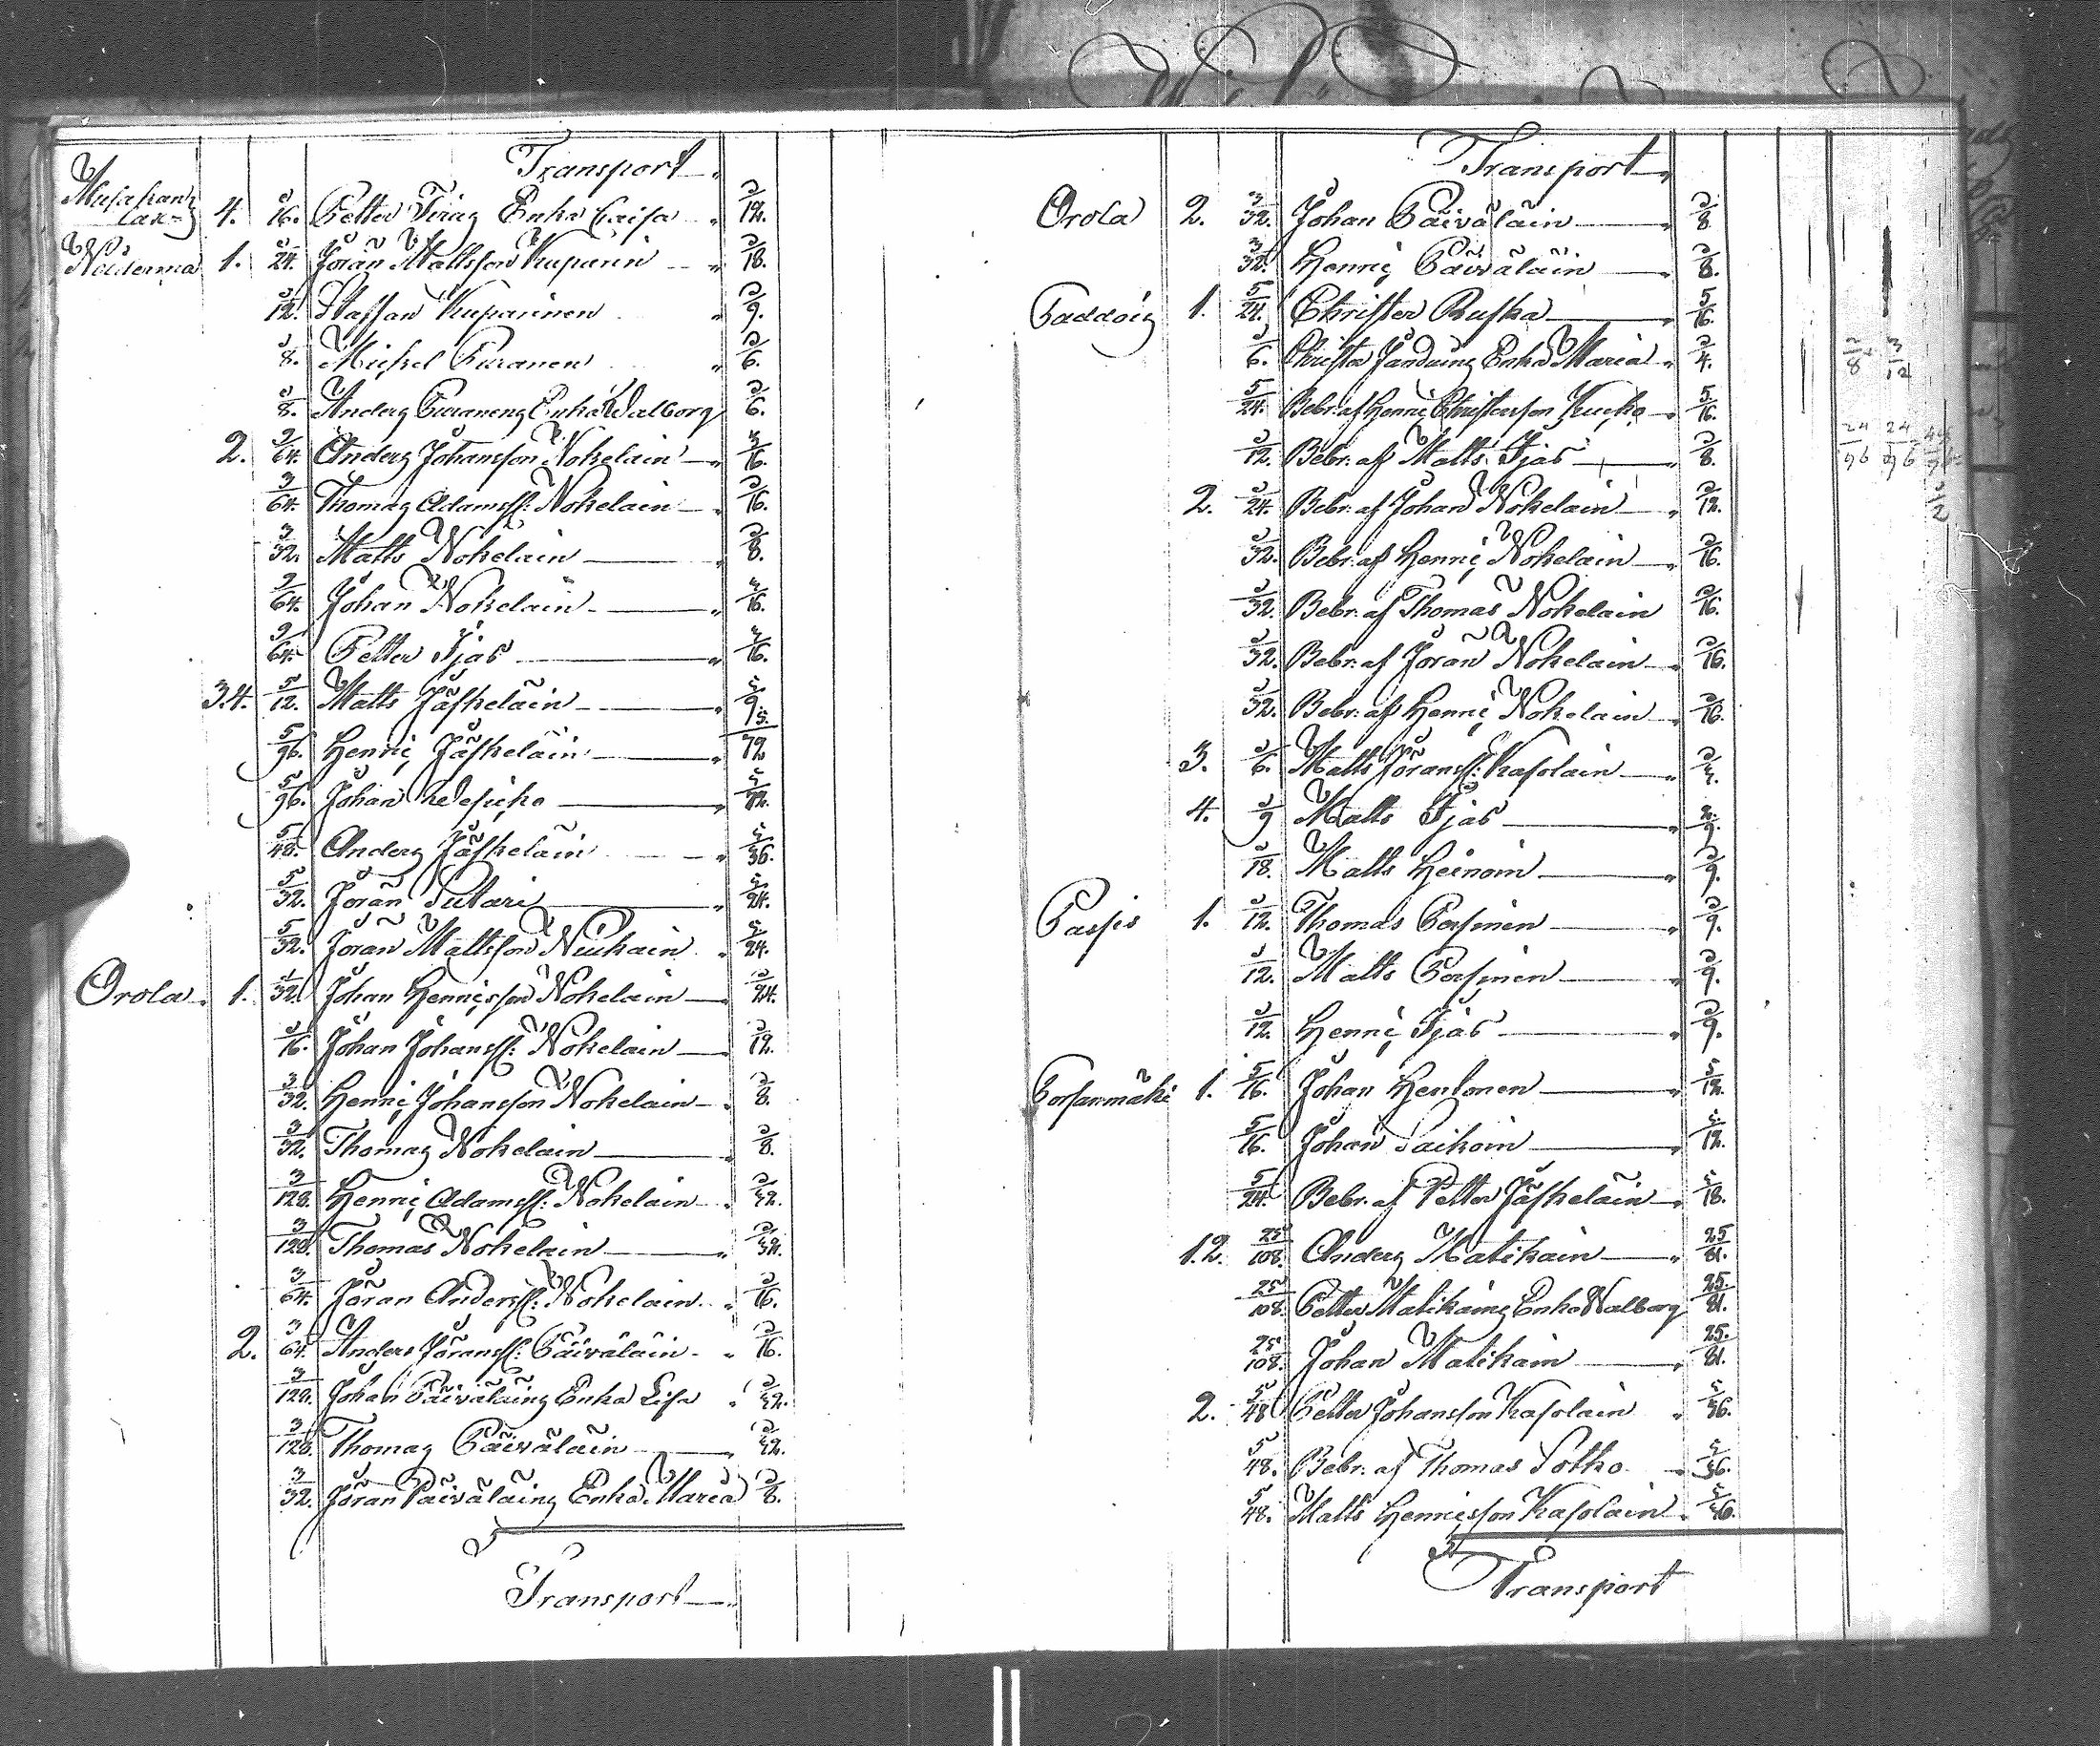 Transport
Musakan
lax 4. 1/16. Petter Firag Enka Caisa 1/12.
Näiderma 1. 1/24. Jöran Mattsson Kuparin 1/18.
1/12. Staffan Kuparinen 1/9.
1/8. Michel Puranen 1/6.
1/8. Anders Puranens Enka Walborg 1/6.
2. 9/64. Anders Johansson Nokelain 3/16.
3/64. Thomas Adamss: Nokelain 1/16.
3/32. Matts Nokelain 1/8.
9/64. Johan Nokelain 3/16.
9/64. Petter Ijäs 3/16.
3.4. 5/12. Matts Jäskeläin 5/9.
5/96. Henric Jäskeläin 5/72
5/96. Johan 5/72.
5/48. Anders Jäskeläin 5/36.
5/32. Jöran Sutari 5/24.
5/32. Jöran Mattsson Niukain 5/24.
Orola 1. 1/32. Johan Henricsson Nokelain 1/24.
1/16. Johan Johanss: Nokelain 1/12.
3/32. Henric Johansson Nokelain 1/8.
3/32. Thomas Nokelain 1/8.
3/128. Henric Adamss: Nokelain 1/32.
3/128. Thomas Nokelain 1/32.
3/64. Jöran Anderss: Nokelain 1/16.
2. 3/64. Anders Jöranss: Päiväläin 1/16.
3/128. Johan Päiväläins Enka Lisa 1/32.
3/128. Thomas Päiväläin 1/32.
3/32. Jöran Päiväläins Enka Maria 1/8.
Transport
Transport
Orola 2. 3/32. Johan Päiväläin 1/8.
3/32. Henric Päiväläin 1/8.
1. 5/24. Christer Ruska 5/16.
1/6. Christer Enka Maria 1/4.
5/24. Bebr: af Henric Christersson Kucko 5/16.
1/12. Bebr: af Matts Ijäs 1/8.
2. 1/24. Bebr: af Johan Nokelain 1/12.
1/32. Bebr: af Henric Nokelain 1/16.
1/32. Bebr: af Thomas Nokelain 1/16.
1/32. Bebr: af Jöran Nokelain 1/16.
1/32. Bebr: af Henric Nokelain 1/16.
3. 1/6. Matts Jöranss: Kasolain
4. 1/9 Matts Ijäs 2/9.
1/18. Matts Heinoin 1/9.
Passis 1. 1/12. Thomas Persinen 1/9.
1/12. Matts Persinen 1/9.
1/12. Henric Ijäs 1/9.
Porsanmäki 1. 5/16. Johan Hentonen 5/12.
5/16. Johan Paikoin 5/12.
5/24. Bebr. af Petter Jäskeläin 5/18.
1.2. 25/108. Anders Matikain 25/81.
25/108. Petter Matikains Enka Walborg 25/81.
25/108. Johan Matikain 25/81.
2. 5/48 Petter Johansson Kasolain 5/36.
5/48. Bebr. af Thomas Sotko 5/36.
5/48. Matts Henricsson Kasolain 5/36.
Transport